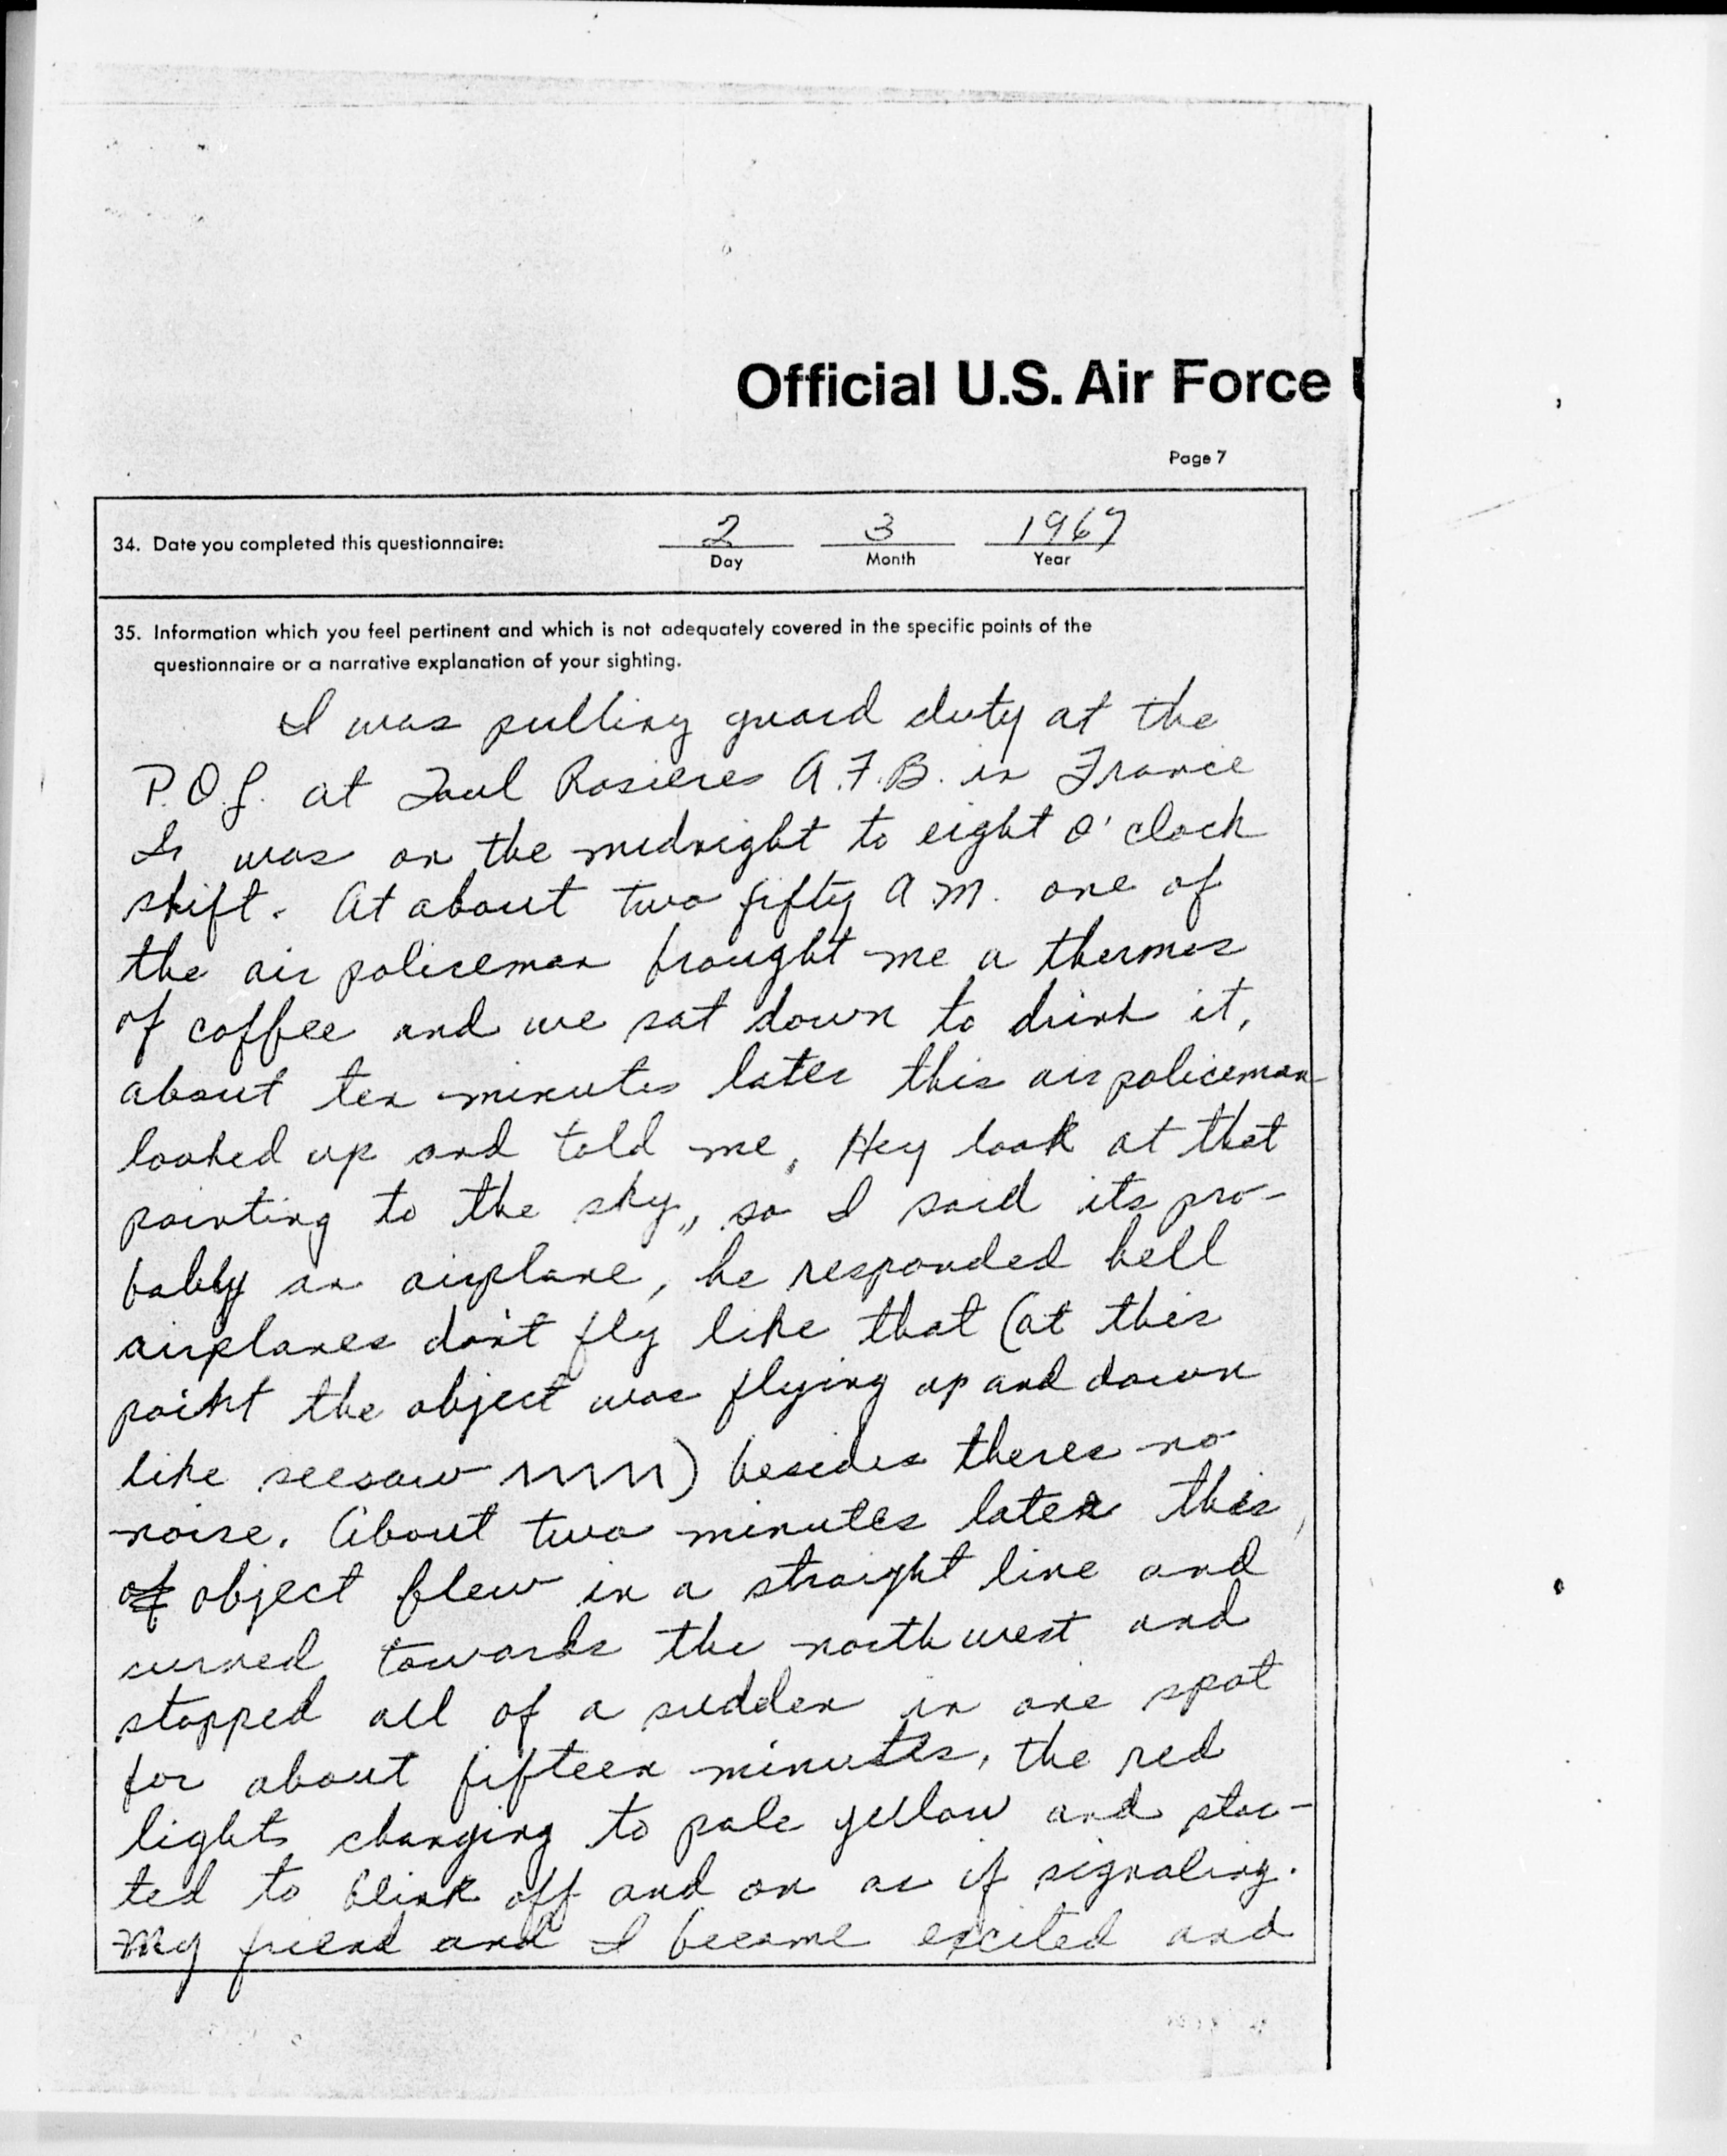 Official U.S. Air Force
Page 7
34. Date you completed this questionnaire: 2 3 1967
Day Month Year
35. Information which you feel pertinent and which is not adequately covered in the specific points of the
questionnaire or a narrative explanation of your sighting.
I was pulling guard duty at the
P.O.L. at Toul Rosieres A.F.B. in France
I was on the midnight to eight O'clock
shift. At about two fifty A.M. one of
the air policeman brought me a thermos
of coffee and we sat down to drink it,
about ten minutes later this air policeman
looked up and told me, Hey look at that
pointing to the sky,, so I said its pro-
bably an airplane, he responded hell
airplanes don't fly like that (at this
point the object was flying up and down
like seesaw ) besides theres no
noise. About two minutes later this
of object flew in a straight line and
curved towards the northwest and
stopped all of a sudden in one spot
for about fifteen minutes, the red
lights changing to pale yellow and star-
ted to blink off and on as if signaling.
My friend and I became excited and